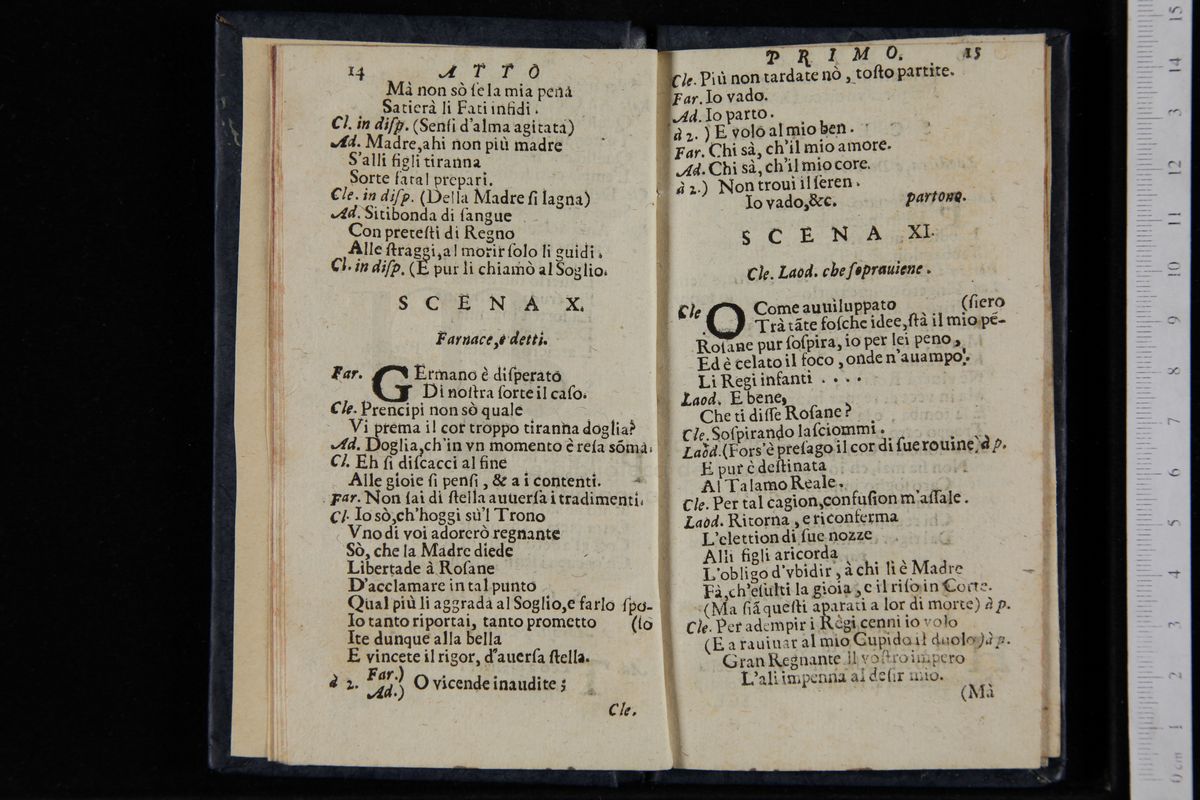 14 ATTO
Mà non sò ſe la mia pena
Satierà li Fati infidi.
Cl. in diſp. (Senſi d'alma agitata)
Ad. Madre,ahi non più madre
S'alli figli tiranna
Sorte fatal prepari.
Cle. in diſp. (Della Madre ſi lagna)
Ad. Sitibonda di ſangue
Con preteſti di Regno
Alle ſtraggi,al morir ſolo li guidi.
Cl. in diſp. (E pur li chiamò al Soglio.
SCENA X.
Farnace,e detti.
Far. GErmano è diſperato
Di noſtra ſorte il caſo.
Cle. Prencipi non sò quale
Vi prema il cor troppo tiranna doglia?
Ad. Doglia,ch'in vn momento è reſa sōma.
Cl. Eh ſi diſcacci al fine
Alle gioie ſi penſi, & a i contenti.
Far. Non ſai di ſtella auuerſa i tradimenti.
Cl. Io sò,ch'hoggi sù'l Trono
Vno di voi adorerò regnante
Sò, che la Madre diede
Libertade à Roſane
D'acclamare in tal punto
Qual più li aggrada al Soglio,e farlo ſpo-
Io tanto riportai, tanto prometto (ſo
Ite dunque alla bella
E vincete il rigor, d'auerſa ſtella.
à 2. Far.)
Ad.) O vicende inaudite;
Cle.
PRIMO. 15
Cle. Più non tardate nò, toſto partite.
Far. Io vado.
Ad. Io parto.
à 2. ) E volo al mio ben.
Far. Chi sà, ch'il mio amore.
Ad. Chi sà, ch'il mio core.
à 2.) Non troui il ſeren.
Io vado,&c. partono.
SCENA XI.
Cle. Laod. che ſoprauiene.
Cle O Come auuiluppato (ſiero
Trà tāte foſche idee,ſtà il mio pē-
Roſane pur ſoſpira, io per lei peno,
Ed è celato il foco, onde n'auampo.
Li Regi infanti ....
Laod. E bene,
Che ti diſſe Roſane?
Cle. Soſpirando laſciommi.
Laod. (Forſ'è preſago il cor di ſue rouine) à p.
E pur è deſtinata
Al Talamo Reale.
Cle. Per tal cagion,confuſion m'aſſale.
Laod. Ritorna, e riconferma
L'elettion di ſue nozze
Alli figli aricorda
L'obligo d'vbidir, à chi li è Madre
Fà,ch'eſulti la gioia, e il riſo in Corte.
(Ma ſiā queſti aparati a lor di morte) à p.
Cle. Per adempir i Regi cenni io volo
(E a rauiuar al mio Cupido il duolo) à p.
Gran Regnante il voſtro impero
L'ali impenna al deſir mio.
(Mà